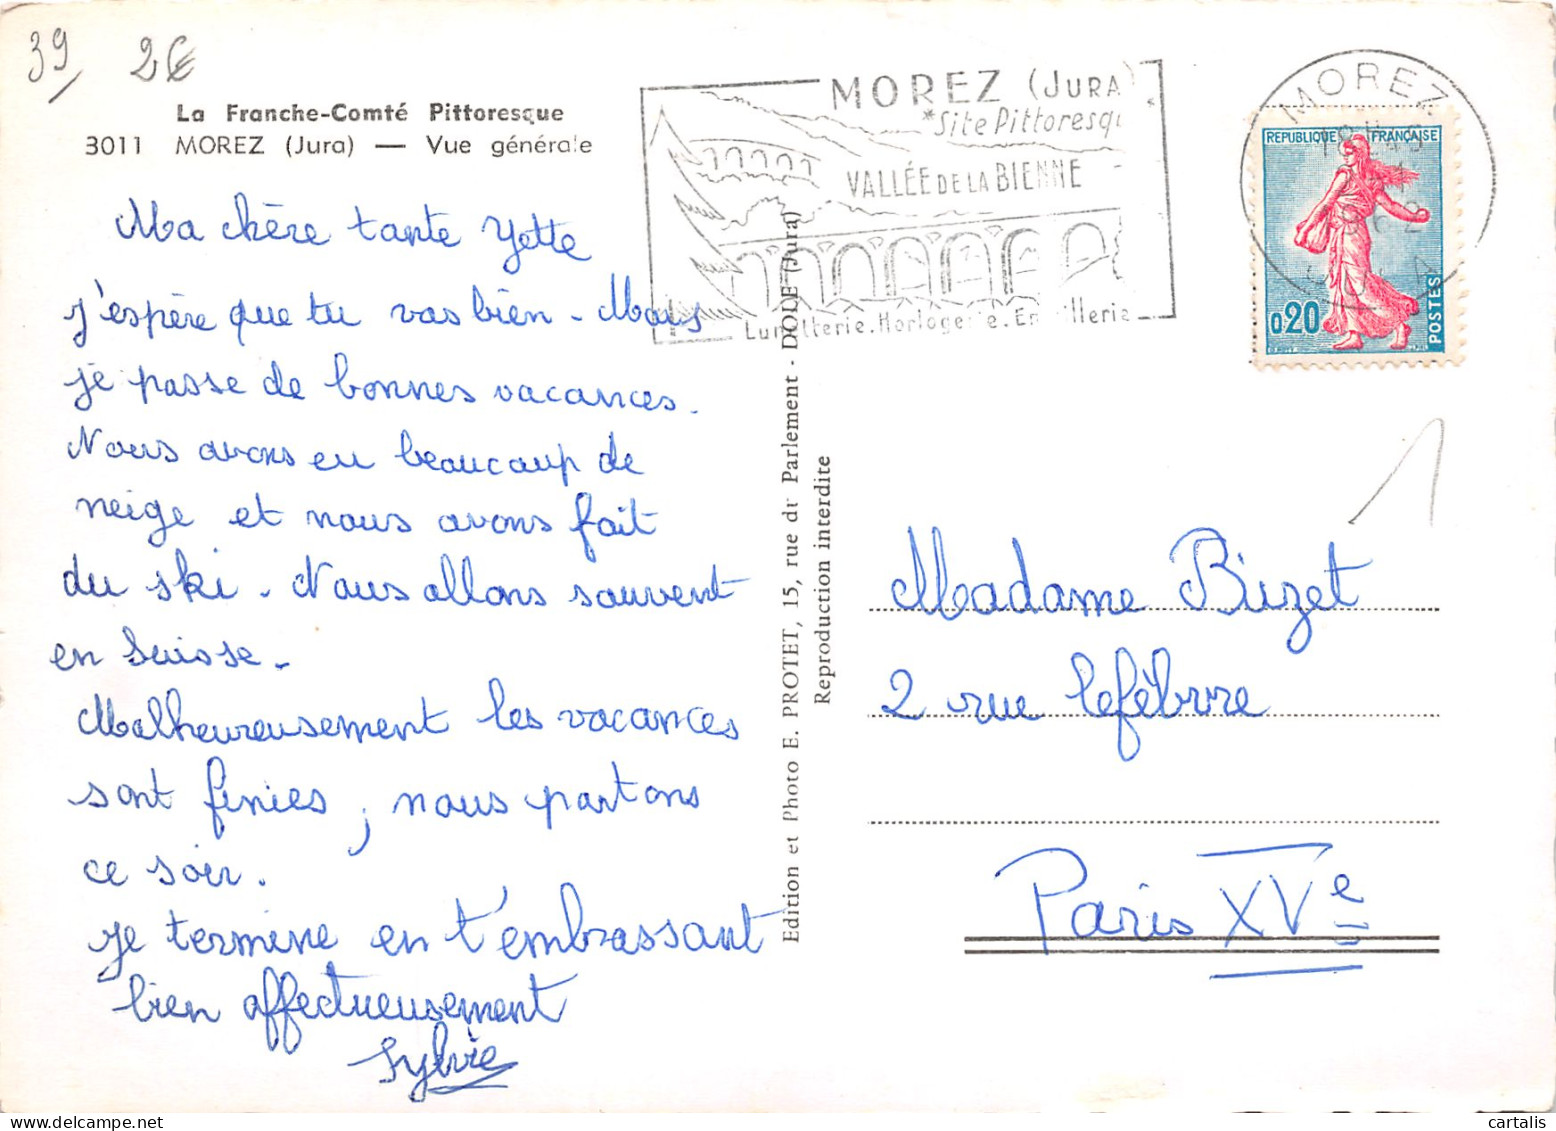 39 2€
La Franche-Comté Pittoresque
3011 MOREZ (Jura) — Vue générale
Ma chère tante Yette
j'espère que tu vas bien - Mous
je passe de bonnes vacances.
Nous avons eu beaucoup de
neige et nous avons fait
du ski. Nous allons souvent
en Suisse.
Malheureusement les vacances
sont finies, nous partons
ce soir.
je termine en t'embrassant
bien affectueusement
Sylvie
Edition et Photo E. PROTET, 15, rue du Parlement - DOLE (Jura)
Reproduction interdite
MOREZ (JURA)
*Site Pittoresqu
VALLÉE DE LA BIENNE
Lunetterie. Horlogerie. Emaillerie
MOREZ
1962
JURA
REPUBLIQUE FRANÇAISE
0,20
POSTES
1
Madame Buzet
2 rue Lefèbvre
Paris XVe
cartalis